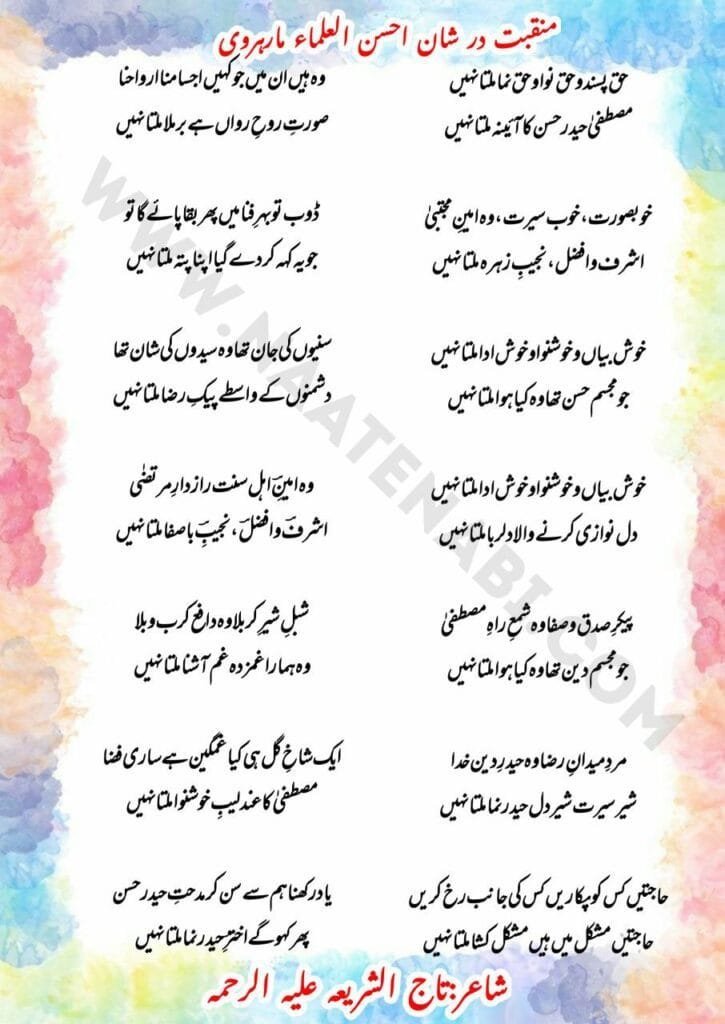 منقبت در شان احسن العلماء مارہروی
حق پسند و حق نوا و حق نما ملتا نہیں
مصطفیٰ حیدر حسن کا آئینہ ملتا نہیں
خوبصورت، خوب سیرت، وہ امینِ مجتبیٰ
اشرف و افضل، نجیبِ زہرہ ملتا نہیں
خوش بیاں و خوشنوا و خوش ادا ملتا نہیں
جو مجسم حسن تھا وہ کیا ہوا ملتا نہیں
خوش بیاں و خوشنوا و خوش ادا ملتا نہیں
دل نوازی کرنے والا دلربا ملتا نہیں
پیکرِ صدق و صفا وہ شمعِ راہِ مصطفیٰ
جو مجسم دین تھا وہ کیا ہوا ملتا نہیں
مردِ میدانِ رضا وہ حیدرِ دین خدا
شیر سیرت شیر دل حیدر نما ملتا نہیں
حاجتیں کس کو پکاریں کس کی جانب رخ کریں
حاجتیں مشکل میں ہیں مشکل کشا ملتا نہیں
وہ ہیں ان میں جو کہیں اجسامنا ارواحنا
صورتِ روحِ رواں ہے برملا ملتا نہیں
ڈوب تو بہرِ فنا میں پھر بقا پائے گا تو
جو یہ کہہ کر دے گیا اپنا پتہ ملتا نہیں
سنیوں کی جان تھا وہ سیدوں کی شان تھا
دشمنوں کے واسطے پیکِ رضا ملتا نہیں
وہ امینِؔ اہل سنت رازدارِ مرتضٰی
اشرفؔ و افضلؔ، نجیبِؔ باصفا ملتا نہیں
شبلِ شیرِ کربلا وہ دافعِ کرب و بلا
وہ ہمارا غمزدہ غم آشنا ملتا نہیں
ایک شاخِ گل ہی کیا غمگین ہے ساری فضا
مصطفیٰ کا عندلیبِ خوشنوا ملتا نہیں
یاد رکھنا ہم سے سن کر مدحتِ حیدر حسن
پھر کہو گے اخترِ حیدر نما ملتا نہیں
شاعر:تاج الشریعہ علیہ الرحمہ
WWW.NAATENABI.COM